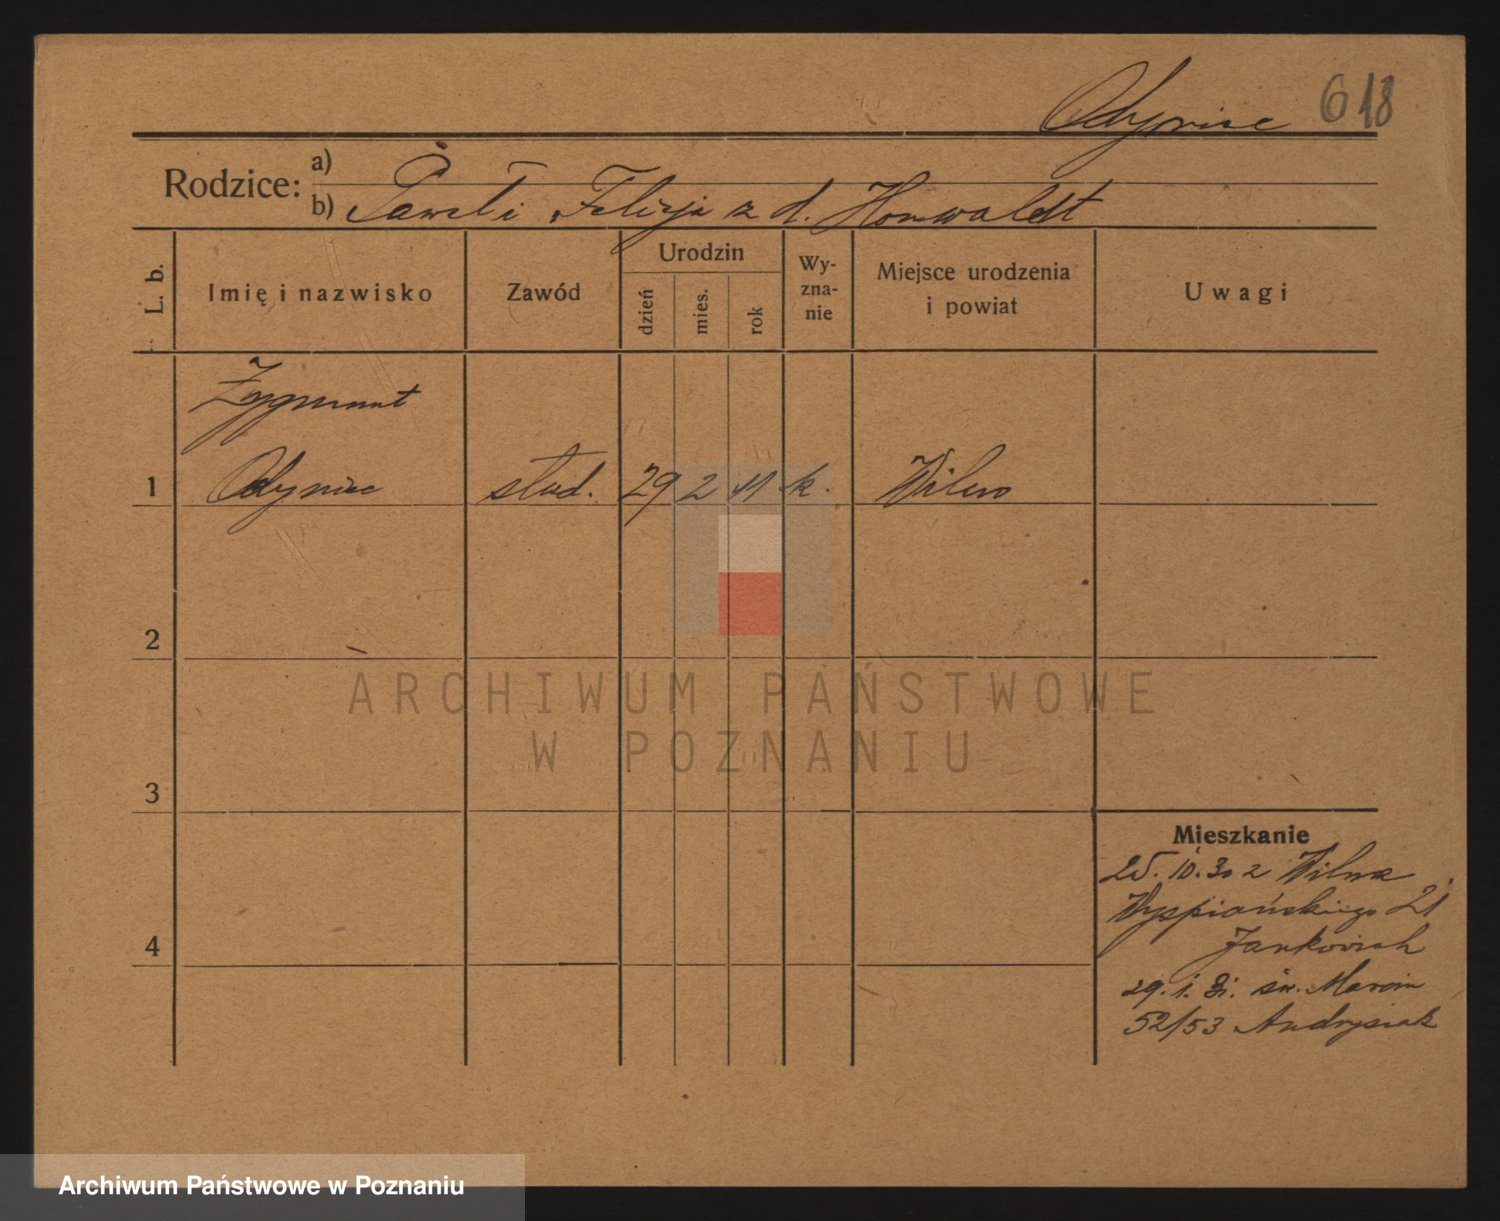 Odyniec 618
Rodzice: a)
b) Paweł i Felicja z d. Homwaldt
L. b.
Imię i nazwisko
Zawód
Urodzin
dzień
mies.
rok
Wy-
zna-
nie
Miejsce urodzenia
i powiat
Uwagi
Zygmunt
1 Odyniec stud. 29 2 11 k. Wilno
2
ARCHIWUM PAŃSTWOWE
W POZNANIU
3
Mieszkanie
25. 10. 30 z Wilna
Wyspiańskiego 21
Jankowiak
4
29. 1. 31. św. Marcin
52/53 Andrysiak
Archiwum Państwowe w Poznaniu